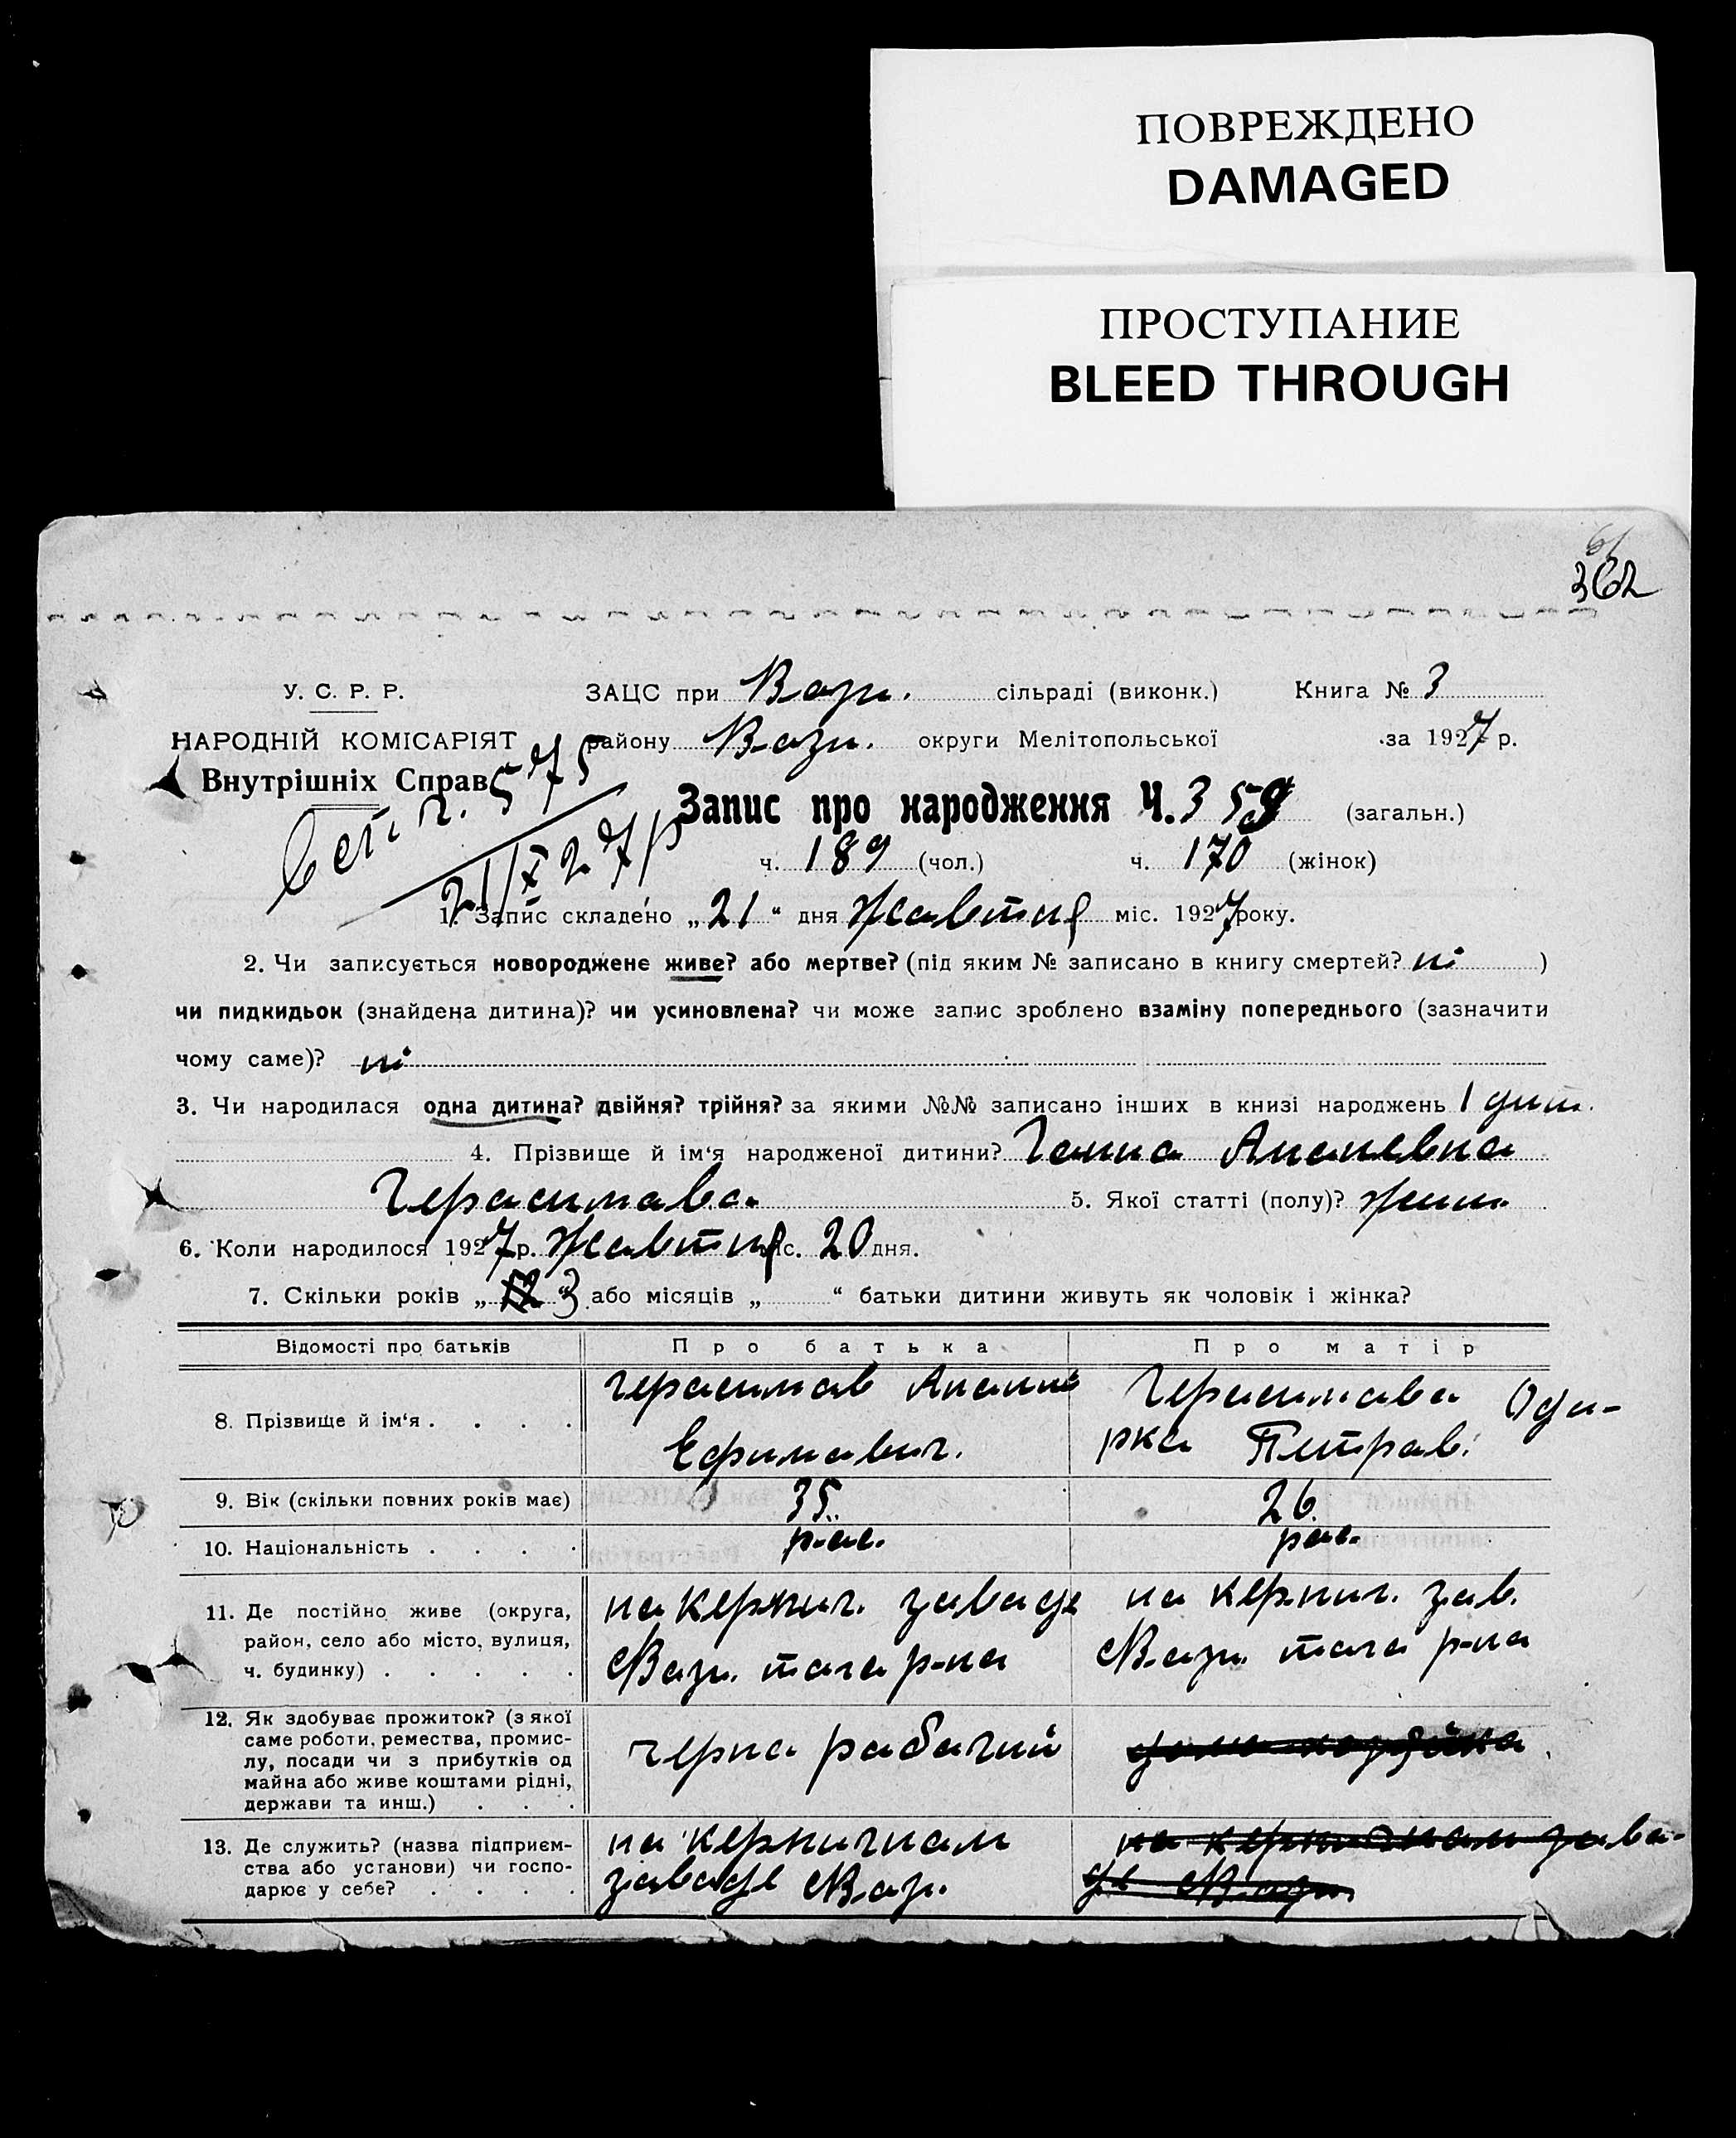 ПОВРЕЖДЕНО
DAMAGED
ПРОСТУПАНИЕ
BLEED THROUGH
362
У. С. Р. Р. ЗАЦС при Вози. сільраді (виконк.) Книга № 3
НАРОДНІЙ КОМІСАРІЯТ району Вози. округи Мелітопольської за 1927 р.
Внутрішніх Справ 575
Запис про народження Ч. 359 (загальн.)
21/X 27 р
ч. 189 (чол.) ч. 170 (жінок)
1. Запис складено „21“ дня Жавтня міс. 1927 року.
2. Чи записується новороджене живе? або мертве? (під яким № записано в книгу смертей? ні )
чи пидкидьок (знайдена дитина)? чи усиновлена? чи може запис зроблено взаміну попереднього (зазначити
чому саме)? ні
3. Чи народилася одна дитина? двійня? трійня? за якими №№ записано інших в книзі народжень 1 дит.
4. Прізвище й ім‘я народженої дитини? Ганна Ананевна
Герасимава 5. Якої статті (полу)? жин.
6. Коли народилося 1927 р. Жавтня міс. 20 дня.
7. Скільки років „ 3 або місяців „ “ батьки дитини живуть як чоловік і жінка?
Відомості про батьків Про батька Про матір
8. Прізвище й ім‘я . . . . Герасимав Анании Герасимава Оди-
Ефимавич. рка Питрав.
9. Вік (скільки повних років має) 35. 26.
10. Національність . . . . рос. рос.
11. Де постійно живе (округа, на керпич. заваде на керпич. зав.
район, село або місто, вулиця,
ч. будинку) . . . . . Вози. тога р-на Вози. тога р-на
12. Як здобуває прожиток? (з якої
саме роботи, ремества, промис-
лу, посади чи з прибутків од черна рабачий дома хозяйка
майна або живе коштами рідні,
держави та инш.) . . .
13. Де служить? (назва підприєм- на керпичнам на керпичнам зава-
ства або установи) чи госпо- заваде Воз. де Вози
дарює у себе? . . . .